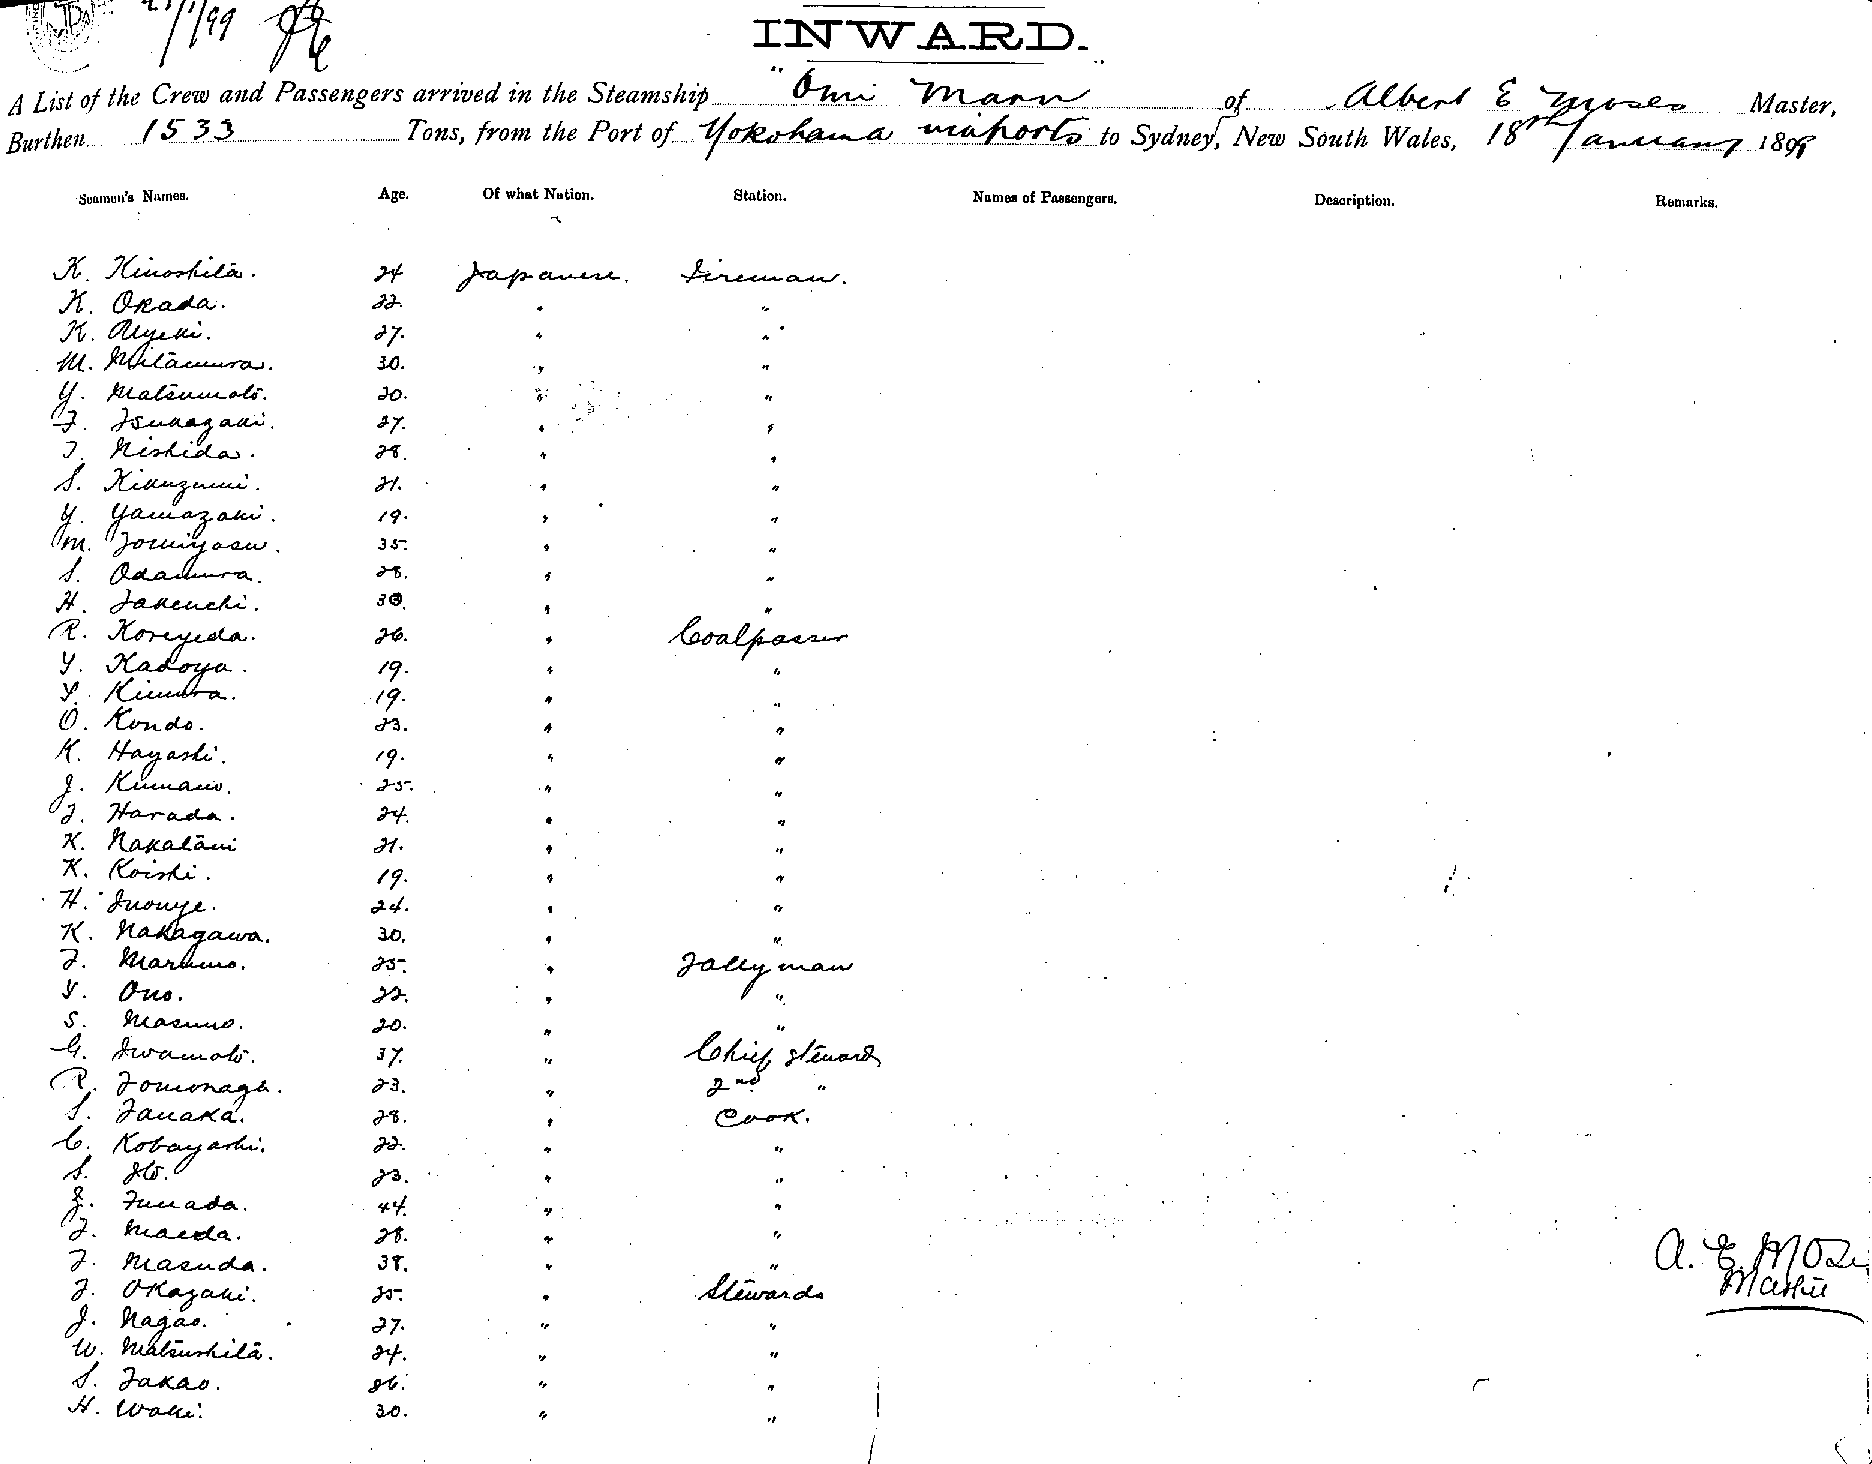 21/1/99
INWARD.
A List of the Crew and Passengers arrived in the Steamship "Omi Maru" of Albert E Moses Master,
Burthen 1533 Tons, from the Port of Yokohama via ports to Sydney, New South Wales, 18th January 1899
Seamen's Names. Age. Of what Nation. Station. Names of Passengers. Description. Remarks.
K. Kinoshita. 24 Japanese. Fireman.
K. Okada. 22. " "
K. Uyeki. 27. " "
M. Mitamura. 30. " "
Y. Matsumoto. 20. " "
T. Tsukazaki. 27. " "
T. Nishida. 28. " "
S. Kikuzumi. 21. " "
Y. Yamazaki. 19. " "
M. Tomiyasu. 35. " "
S. Odamura. 28. " "
H. Takeuchi. 30. " "
R. Koreyeda. 26. " Coalpasser
Y. Kadoya. 19. " "
Y. Kimura. 19. " "
O. Kondo. 23. " "
K. Hayashi. 19. " "
J. Kumano. 25. " "
T. Harada. 24. " "
K. Nakatani 21. " "
K. Koishi. 19. " "
H. Inouye. 24. " "
K. Nakagawa. 30. " "
T. Marumo. 25. " Tallyman
Y. Ono. 22. " "
S. Masuno. 20. " "
G. Iwamoto. 37. " Chief Steward
R. Tomonaga. 23. " 2nd "
S. Tanaka. 28. " Cook.
C. Kobayashi. 22. " "
S. Ito. 23. " "
Z. Funada. 44. " "
T. Maeda. 28. " "
T. Masuda. 38. " "
T. Okazaki. 25. " Stewards
J. Nagao. 27. " "
W. Matsushita. 24. " "
S. Takao. 26. " "
H. Waki. 30. " "
A. E. Moses
Master